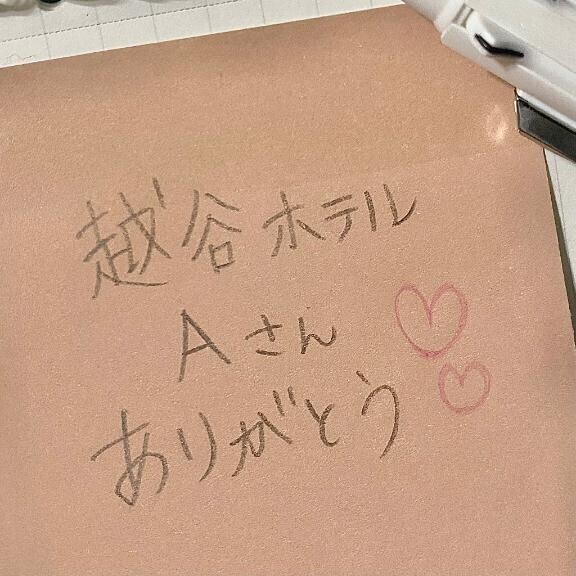 越谷ホテル
Aさん
ありがとう